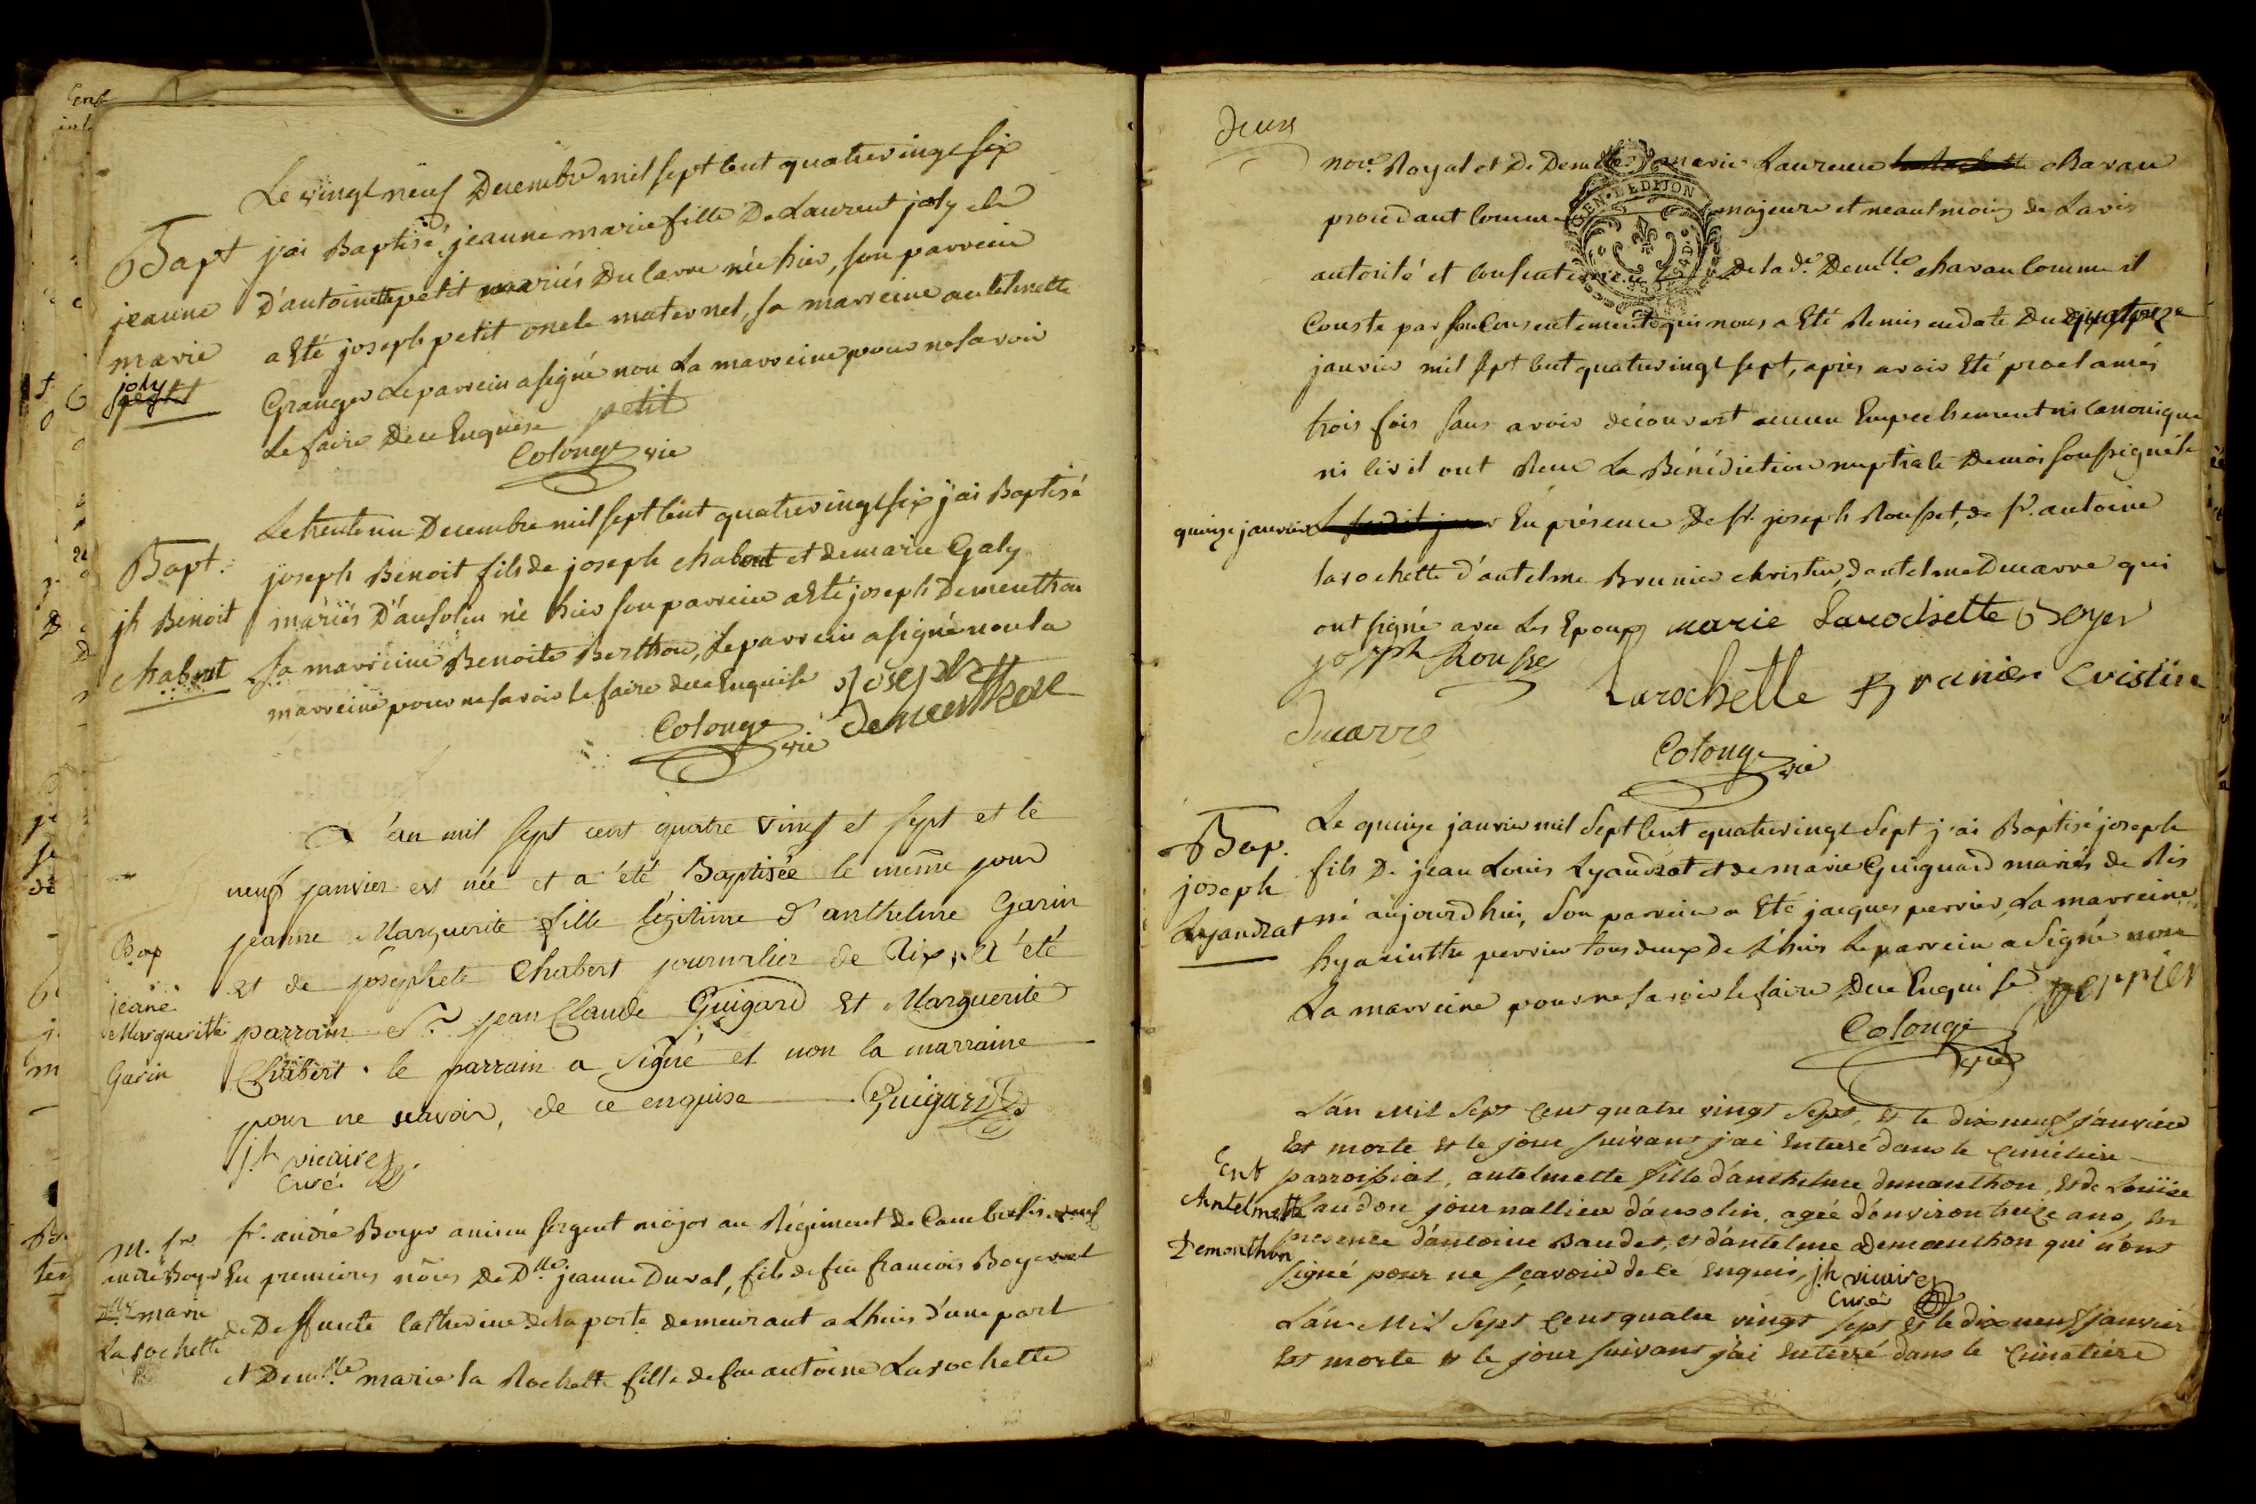 Le vingt neuf Decembre mil sept cent quatrevingt six
Bapt j'ai Baptisé jeanne marie fille De Laurent joly et
jeanne D'antoinette petit mariés Du lavre née hier, son parrein
marie a Eté joseph petit oncle maternel, sa marreine antelmette
joly Granger Le parrein a signé non La marreine pour ne savoir
Le faire De ce Enquise petit
Colonge vic
Le trente un Decembre mil sept cent quatrevingt six j'ai Baptisé
Bapt. joseph Benoit fils de joseph chabert et de marie Galy
jh Benoit mariés D'ansolin né hier son parrein a Eté joseph Dementhon
chabert Sa marreine Benoite Berthon, Le parrein a signé non la
marreine pour ne savoir le faire de ce Enquise joseph
Colonge vic dementhon
L'an mil sept cent quatre vingt et sept et le
neuf janvier est née et a été Baptisée le même jour
jeanne Marguerite fille légitime d'anthelme Garin
Bap et de josephete Chabert journalier de Rix, a été
jeane
Marguerite parrain Sr. jean Claude Guigard et Marguerite
Garin Chabert. le parrain a Signé et non la marraine
pour ne savoir, de ce enquise Guigard
jh vicaire
Curé
M. sr. sr. andré Boyer ancien sergent major au Régiment de Cambresis veuf
andré Boyer En premieres nôces De Dlle. jeanne Duval, fils de feu francois Boyer et
Dlle marie de Deffunte Catherine de la porte demeurant a Lhuis d'une part
La rochette et Demlle marie la Rochette fille de feu antoine Larochette
Deux
nore. Royal et De Demlle marie Laurence chavan
procedant comme majeure et neantmoins de Lavis
autorité et consentement De la de. Demlle chavan comme il
Conste par son Consentement qui nous a Eté Remis en date Du quatorze
janvier mil sept cent quatrevingt sept, après avoir Eté proclamés
trois fois sans avoir découvert aucun Empechement ni canonique
ni civil ont Recu La Bénédiction nuptiale De moi soussigné le
quinze janvier En présence De sr. joseph Rousset, de sr. antoine
larochette d'antelme Brunier christin, d'antelme Ducarre qui
ont signé avec Les Epoux marie Larochette Boyer
joseph Rousset Larochette Brunier Cristin
Ducarre
Colonge vic
Le quinze janvier mil Sept Cent quatrevingt Sept j'ai Baptisé joseph
Bap. fils De jean Louis Lyaudrat et de marie Guignard mariés de Rix
joseph né aujourd'hui, Son parrein a Eté jacques perrier, La marreine
Lyaudrat hyacinthe perrier tous deux De Lhuis Le parrein a Signé non
La marreine pour ne savoir le faire De ce Enquise perrier
Colonge vic
L'an Mil Sept Cent quatre vingt Sept, et le dix neuf janvier
Est morte et le jour suivant j'ai Enterré dans le Cimétiere
Ent parroissial, antelmette fille d'anthelme demanthon, et de Louise
Antelmette Landon journallier d'ansolin, agée d'environ treize ans, En
Demonthon presence d'antoine Baudet, et d'antelme Demanthon qui n'ont
signé pour ne sçavoir de ce Enquis, jh vicaire
Curé
L'an Mil Sept Cent quatre vingt sept et le dix neuf janvier
Est morte et le jour suivant j'ai Enterré dans le Cimetiére